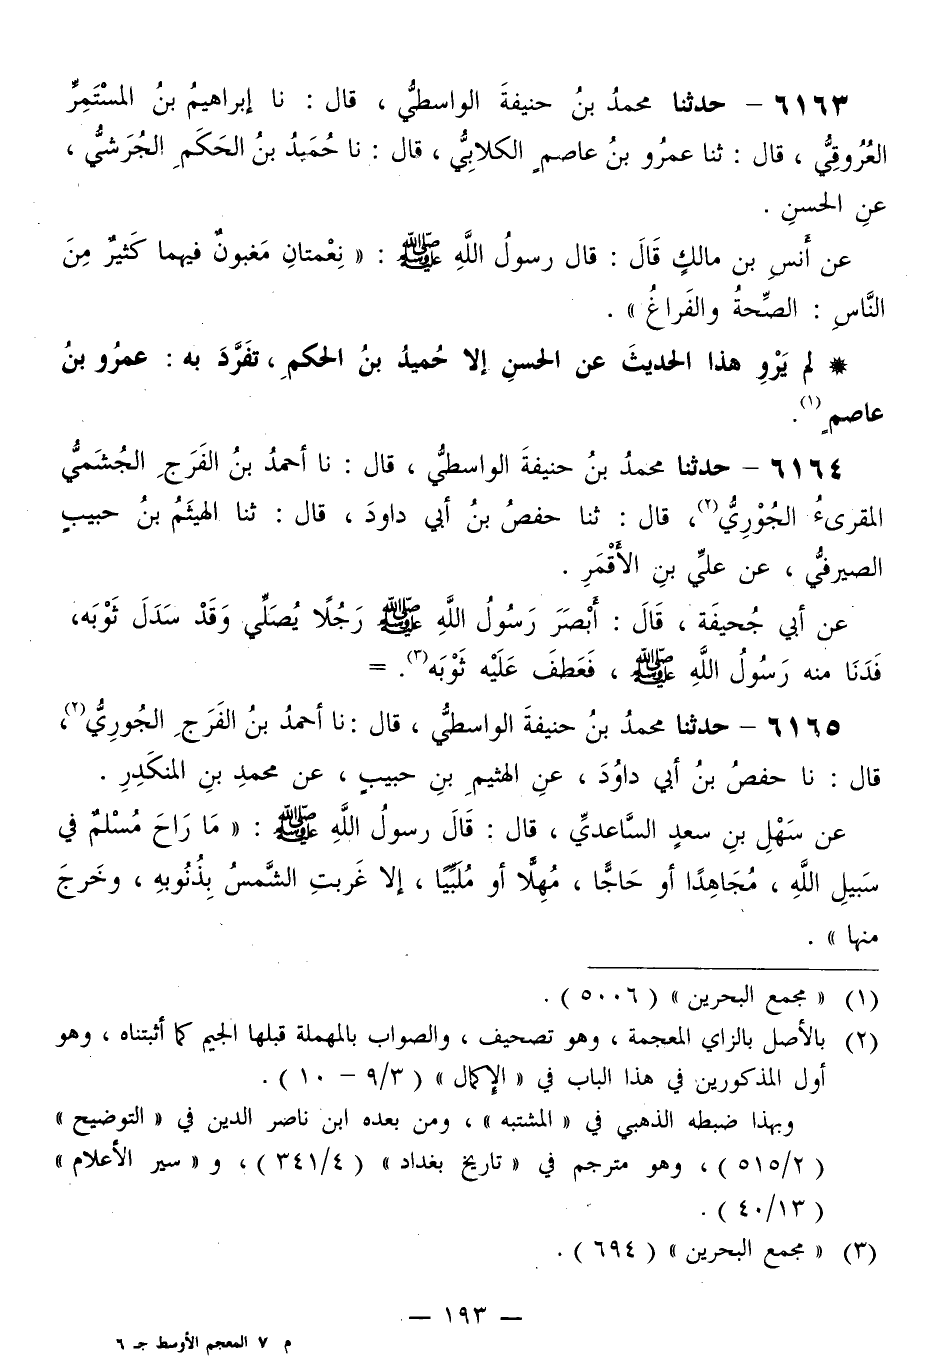 ٦١٦٣ - حدثنا محمدُ بنُ حنيفةَ الواسطيُّ ، قال : نا إبراهيمُ بنُ المسْتَمِرِّ
العُرُوقِيُّ ، قال : ثنا عمرُو بنُ عاصمٍ الكلابيُّ ، قال : نا حُمَيدُ بنُ الحَكَمِ الجُرَشيُّ ،
عنِ الحسنِ .
عن أَنسِ بن مالكٍ قَالَ : قال رسولُ اللَّهِ ﷺ : « نِعْمتانِ مَغبونٌ فيهما كَثيرٌ مِنَ
النَّاسِ : الصِّحةُ والفَراغُ » .
* لم يَرْوِ هذا الحديثَ عن الحسنِ إلا حُميدُ بنُ الحكمِ ، تفَرَّدَ به : عمرُو بنُ
عاصمٍ (١).
٦١٦٤ - حدثنا محمدُ بنُ حنيفةَ الواسطيُّ ، قال : نا أحمدُ بنُ الفَرَجِ الجُشَميُّ
المقرىءُ الجُوْرِيُّ(٢)، قال : ثنا حفصُ بنُ أبي داودَ ، قال : ثنا الهيثَمُ بنُ حبيبٍ
الصيرفيُّ ، عن عليِّ بنِ الأَقْمَرِ .
عن أبي جُحيفَة ، قَالَ : أَبْصَرَ رَسُولُ اللَّهِ ﷺ رَجُلًا يُصَلِّي وَقَدْ سَدَلَ ثَوْبَه،
فَدَنَا منه رَسُولُ اللَّهِ ﷺ ، فَعَطفَ عَلَيْه ثَوْبَه(٣). =
٦١٦٥ - حدثنا محمدُ بنُ حنيفةَ الواسطيُّ ، قال : نا أحمدُ بنُ الفَرَجِ الجُورِيُّ(٢)،
قال : نا حفصُ بنُ أبي داوُدَ ، عنِ الهثيمِ بنِ حبيبٍ ، عن محمدِ بنِ المنكَدِرِ .
عن سَهْلِ بنِ سعدٍ السَّاعديِّ ، قال : قَالَ رسولُ اللَّهِ ﷺ : « مَا رَاحَ مُسْلمٌ في
سَبيلِ اللَّهِ ، مُجَاهدًا أو حَاجًّا ، مُهِلًّا أو مُلَبِّيًا ، إلا غَربتِ الشَّمسُ بِذُنُوبهِ ، وخَرجَ
منها » .
(١) « مجمع البحرين » ( ٥٠٠٦ ) .
(٢) بالأصل بالزاي المعجمة ، وهو تصحيف ، والصواب بالمهملة قبلها الجيم كما أثبتناه ، وهو
أول المذكورين في هذا الباب في « الإكمال » ( ٩/٣ - ١٠ ) .
وبهذا ضبطه الذهبي في « المشتبه » ، ومن بعده ابن ناصر الدين في « التوضيح »
( ٥١٥/٢ ) ، وهو مترجم في « تاريخ بغداد » ( ٣٤١/٤ ) ، و « سير الأعلام »
( ٤٠/١٣ ) .
(٣) « مجمع البحرين » ( ٦٩٤ ) .
— ١٩٣ —
م ٧ المعجم الأوسط جـ ٦